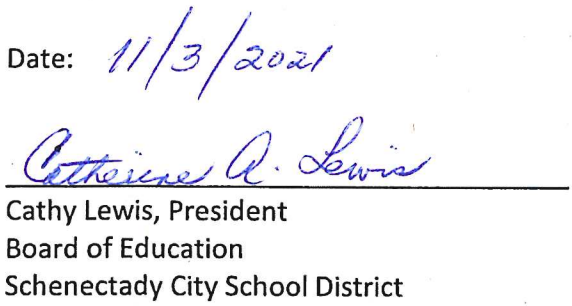 Date: 11/3/2021
Catherine A. Lewis
Cathy Lewis, President
Board of Education
Schenectady City School District